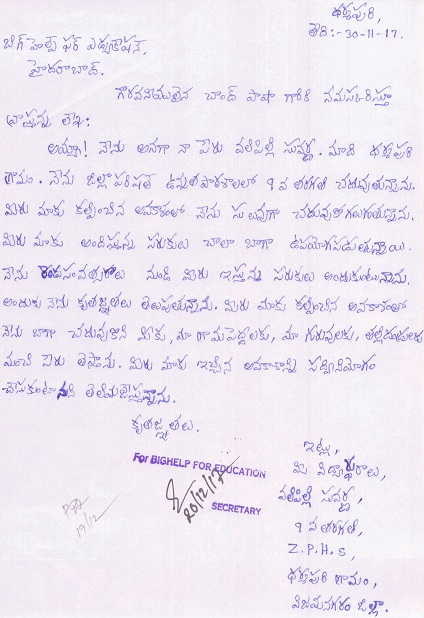 ధర్మపురి,
తేది:-30-11-17.
బిగ్ హెల్ప్ ఫర్ ఎడ్యుకేషన్,
హైదరాబాద్.
గౌరవనీయులైన చాంద్ పాషా గారికి నమస్కరిస్తూ
వ్రాస్తున్న లేఖ:
అయ్యా! నేను అనగా నా పేరు వలిపిల్లి సువర్ణ. మాది ధర్మపురి
గ్రామం. నేను జిల్లా పరిషత్ ఉన్నత పాఠశాలలో 9వ తరగతి చదువుతున్నాను.
మీరు మాకు కల్పించిన అవకాశంతో నేను సులువుగా చదువుకోగలుగుతున్నాను.
మీరు మాకు అందిస్తున్న సరుకులు చాలా బాగా ఉపయోగపడుతున్నాయి.
నేను రెండు సంవత్సరాలు నుండి మీరు ఇస్తున్న సరుకులు అందుకుంటున్నాను.
అందుకు నేను కృతజ్ఞతలు తెలుపుతున్నాను. మీరు మాకు కల్పించిన అవకాశంతో
నేను బాగా చదువుకొని మీకు, మా గ్రామపెద్దలకు, మా గురువులకు, తల్లిదండ్రులకు
మంచి పేరు తెస్తాను. మీరు మాకు ఇచ్చిన అవకాశాన్ని సద్వినియోగం
చేసుకుంటానని తెలియజేస్తున్నాను.
కృతజ్ఞతలు.
ఇట్లు,
మీ విద్యార్థురాలు,
వలిపిల్లి సువర్ణ,
9వ తరగతి,
Z.P.H.S,
ధర్మపురి గ్రామం,
విజయనగరం జిల్లా.
For BIGHELP FOR EDUCATION
20/12/17
SECRETARY
19/12